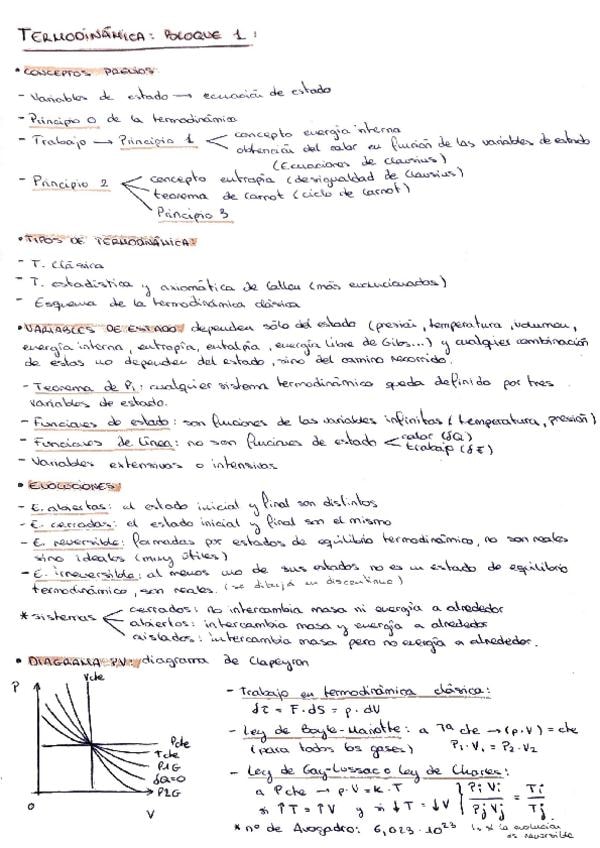 TERMODINÁMICA: BLOQUE 1:
• CONCEPTOS PREVIOS:
- Variables de estado → ecuación de estado
- Principio 0 de la termodinámica
- Trabajo → Principio 1 < concepto energía interna
obtención del calor en función de las variables de estado
(Ecuaciones de Clausius)
- Principio 2 < concepto entropía (desigualdad de Clausius)
teorema de Carnot (ciclo de Carnot)
Principio 3
• TIPOS DE TERMODINÁMICA:
- T. clásica
- T. estadística y axiomática de Callen (más evolucionadas)
- Esquema de la termodinámica clásica
• VARIABLES DE ESTADO: dependen sólo del estado (presión, temperatura, volumen,
energía interna, entropía, entalpía, energía libre de Gibs...) y cualquier combinación
de estas no dependen del estado, sino del camino recorrido.
- Teorema de Pi: cualquier sistema termodinámico queda definido por tres
variables de estado.
- Funciones de estado: son funciones de las variables infinitas (temperatura, presión)
- Funciones de línea: no son funciones de estado < calor (δQ)
trabajo (δτ)
- Variables extensivas o intensivas
• EVOLUCIONES:
- E. abiertas: el estado inicial y final son distintos
- E. cerradas: el estado inicial y final son el mismo
- E. reversible: formadas por estados de equilibrio termodinámico, no son reales
sino ideales (muy útiles)
- E. irreversible: al menos uno de sus estados no es un estado de equilibrio
termodinámico, son reales. (se dibuja en discontinuo)
* sistemas < cerrados: no intercambia masa ni energía a alrededor
abiertos: intercambia masa y energía a alrededor
aislados: intercambia masa pero no energía a alrededor.
• DIAGRAMA PV: diagrama de Clapeyron
P
Vcte
Pcte
Tcte
P1G
δQ=0
P2G
0
V
- Trabajo en termodinámica clásica:
δτ = F·dS = p·dV
- Ley de Boyle-Mariotte: a Tª cte → (p·V) = cte
(para todos los gases) P₁·V₁ = P₂·V₂
- Ley de Gay-Lussac o Ley de Charles:
a Pcte → p·V = K·T
si ↑T = ↑V y si ↓T = ↓V { Pi Vi / Pj Vj = Ti / Tj
* nº de Avogadro: 6,023·10²³ si la evolución
es reversible